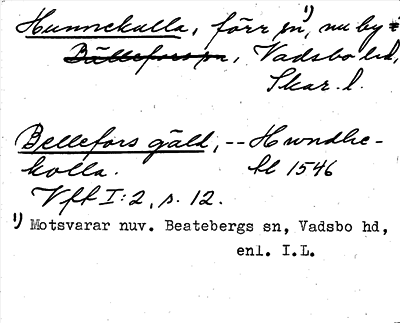 Hunnekulla, förr sn¹⁾, nu by i
Bällefors sn, Vadsbo hd,
Skar. l.
Bellefors gäld, -- Hwndhe-
kolla. hl 1546
Vft I:2, s. 12.
1) Motsvarar nuv. Beatebergs sn, Vadsbo hd,
enl. I.L.